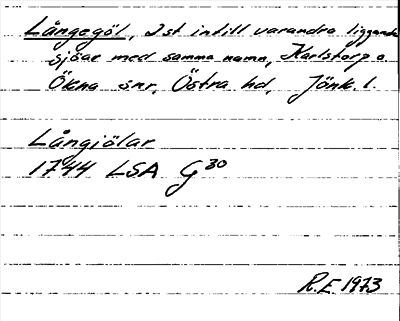 Långegöl, 2st intill varandra liggande
sjöar med samma namn, Karlstorp o.
Ökna snr, Östra hd, Jönk. l.
Långiölar
1744 LSA G30
R.E. 1973